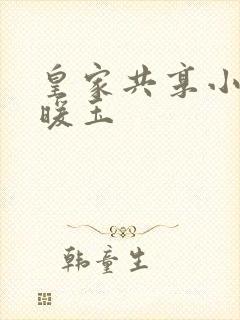 皇家共享小
暖玉
韩童生